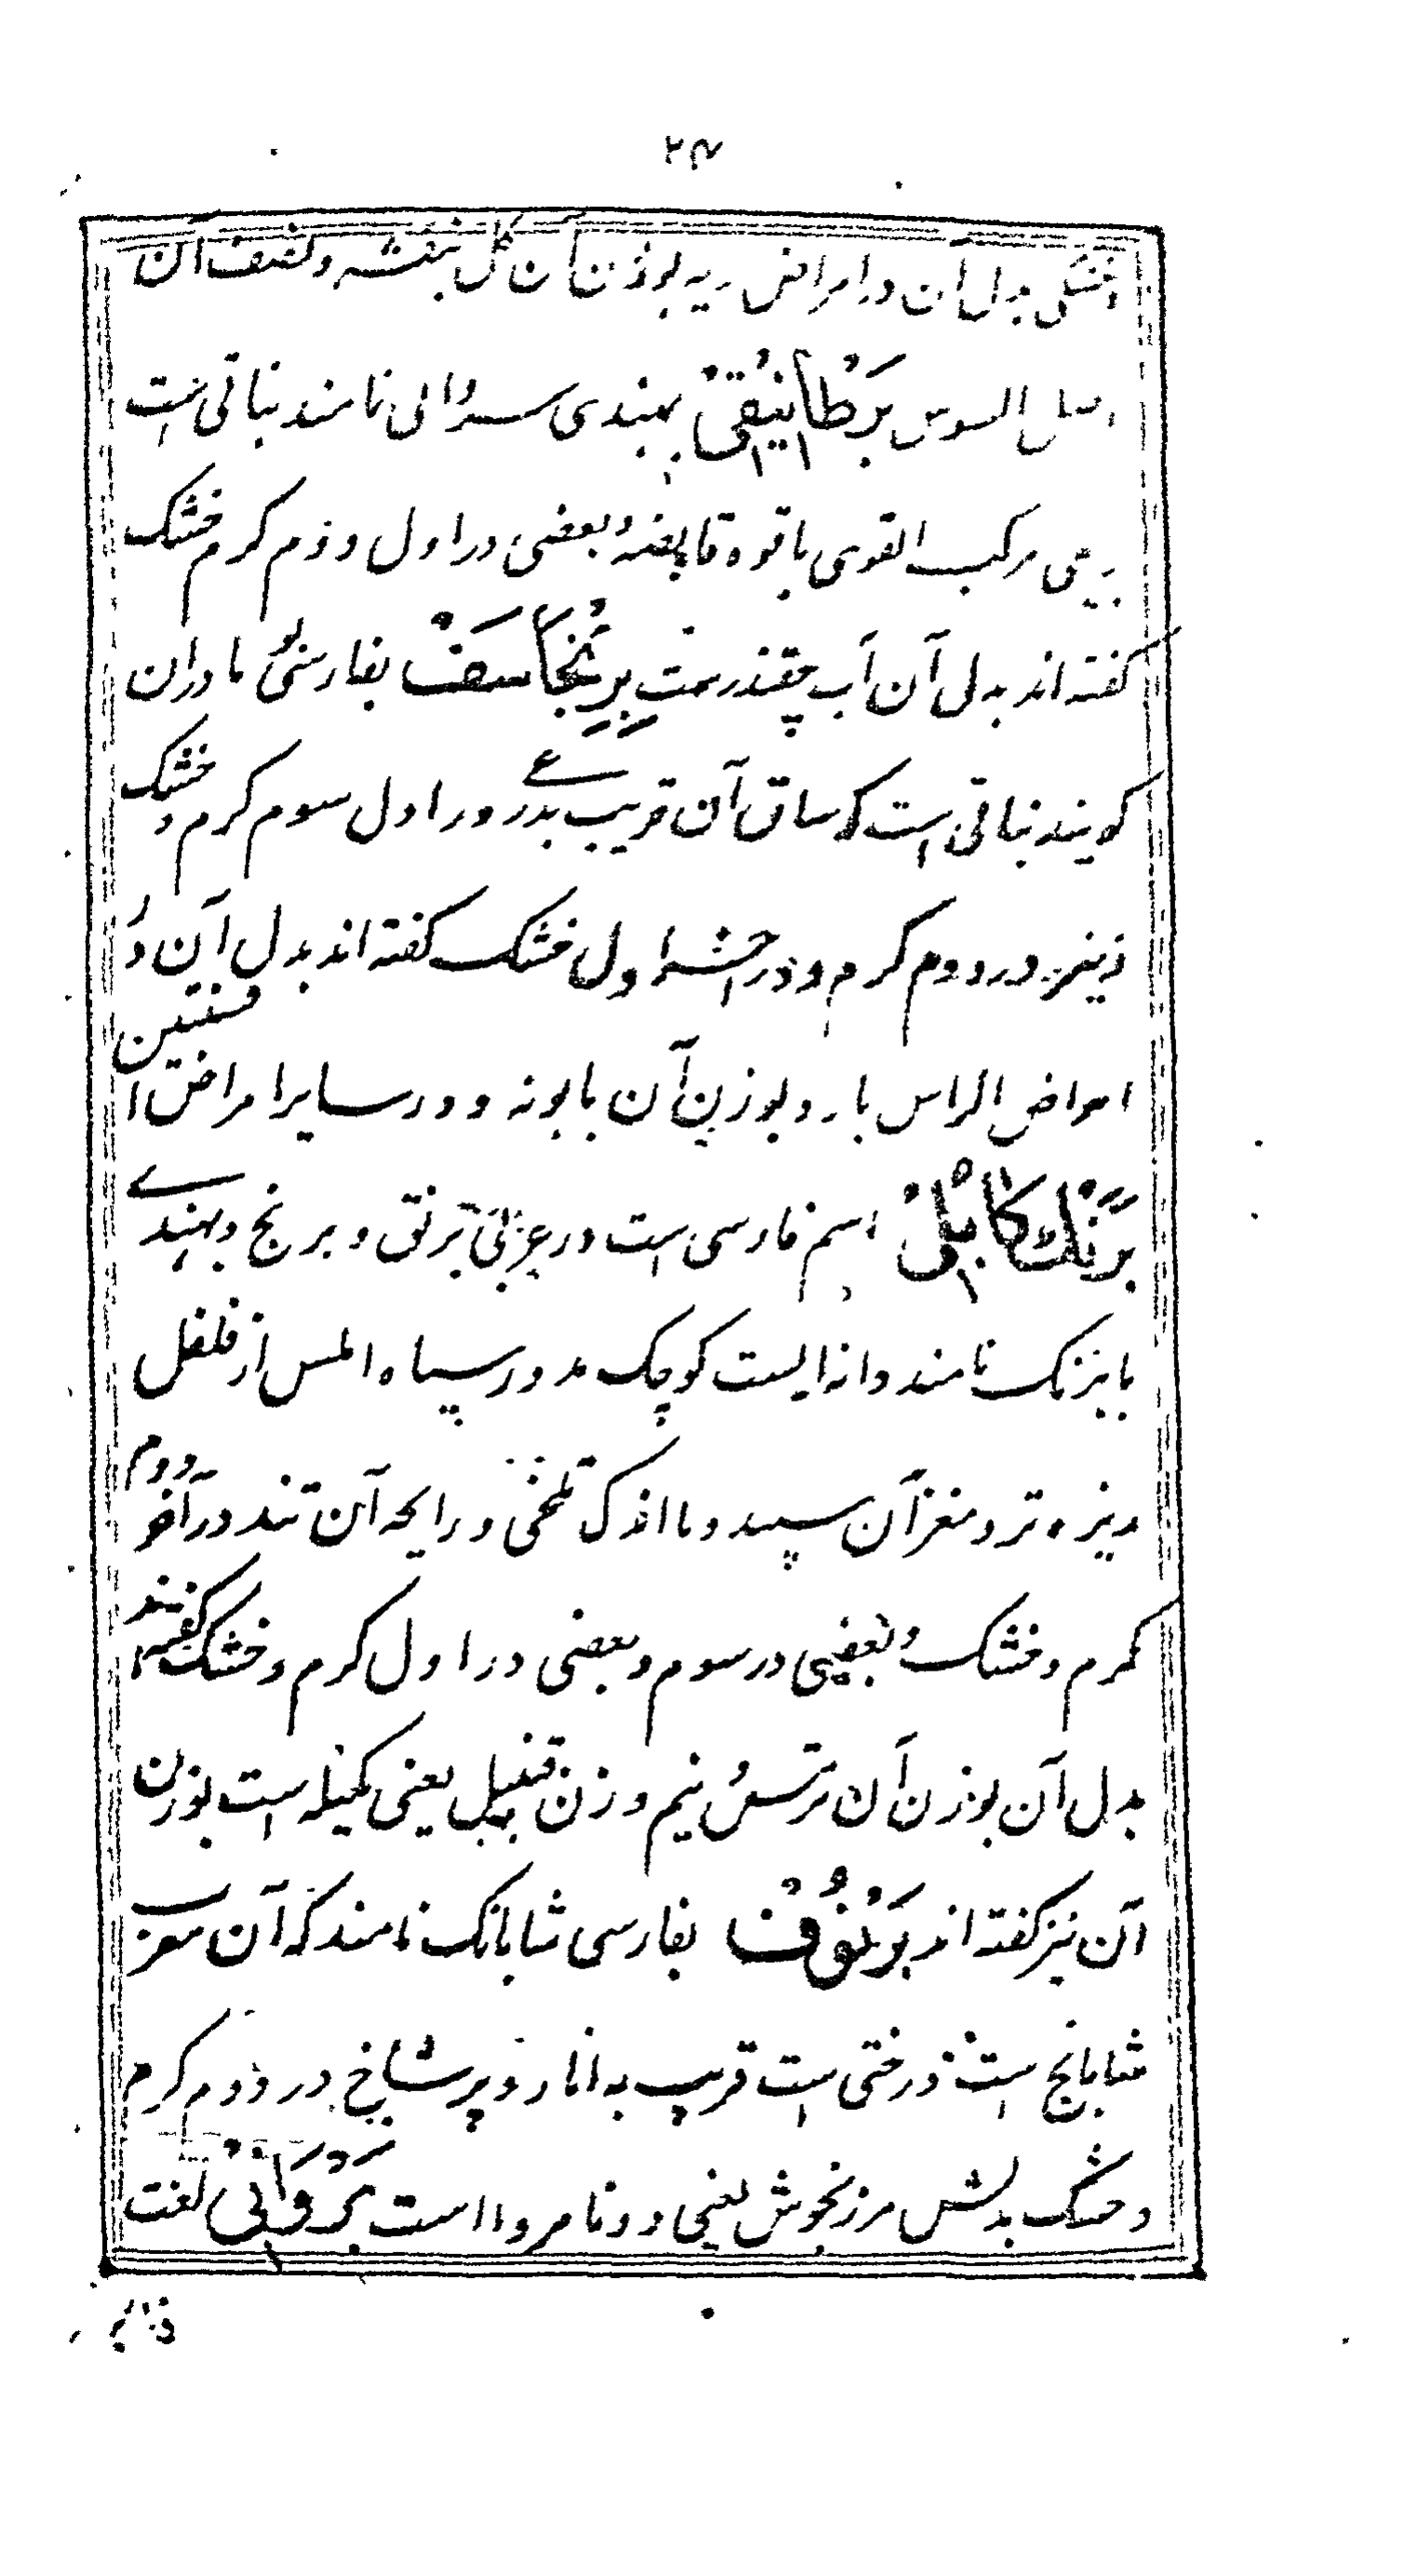 ۲۴
خشکی بدل آن در امراض ریه بوزن آن گل بنفشه و نصف آن
اصل السوس بَرْطانِیْقِیْ بهندی سروالی نامند نباتی است
ربیعی مرکب القوی با قوه قابضه و بعضی در اول و دوم کرم خشک
کفته اند بدل آن آب چقندرست بِرِنْجَاسَفْ بفارسی بوی مادران
کویند نباتی است که ساق آن قریب بذرعی در اول سوم کرم و خشک
و نیز در دوم کرم و در آخر اول خشک کفته اند بدل آن در
امراض الراس بارد بوزن آن بابونه و در سایر امراض افسنتین
بَرَنْک کابُلِیْ اسم فارسی است در عربی برنق و برنج و بهندی
بابرنک نامند دانه ایست کوچک مدور سیاه املس از فلفل
ریزه تر و مغز آن سپید و با اندک تلخی و رایحه آن تند در آخر دوم
کرم و خشک و بعضی در سوم و بعضی در اول کرم و خشک کفته اند
بدل آن بوزن آن ترمس و نیم وزن قنبیل یعنی کمیله است بوزن
آن نیز کفته اند بَرْنُوْف بفارسی شابانک نامند که آن معرب
شابانج است درختی است قریب به انار و پر شاخ در دوم کرم
و خشک بدلش مرزنجوش یعنی دونا مروا است بَرْوَانِیْ لغت